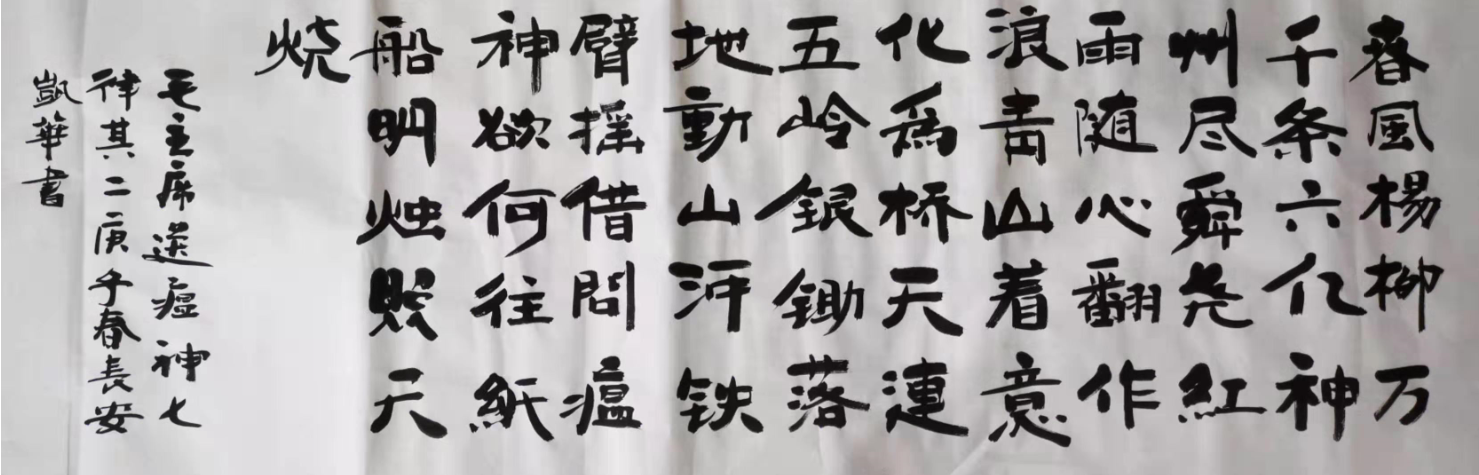 春風楊柳万
千条六亿神
州尽舜尧紅
雨随心翻作
浪青山着意
化為桥天連
五岭银锄落
地動山河铁
臂摇借問瘟
神欲何往紙
船明烛照天
烧
毛主席送瘟神七
律其二庚子春長安
凱華書